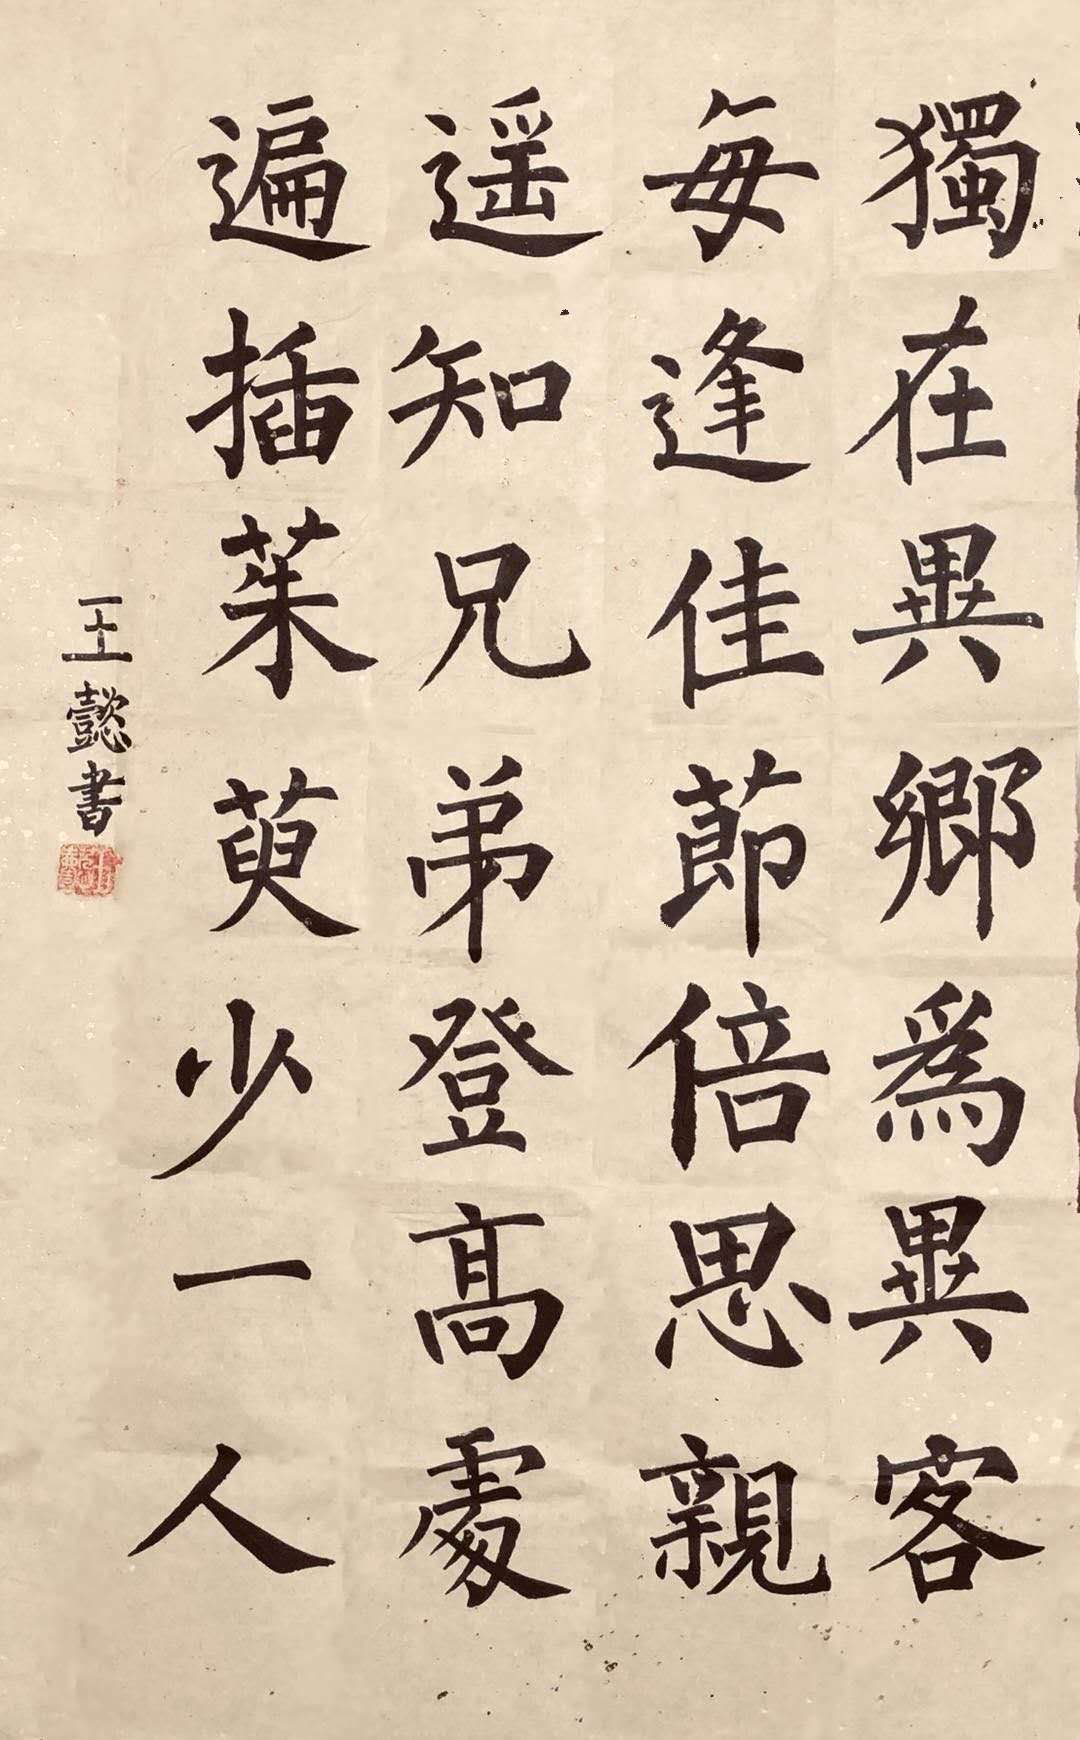 獨在異鄉爲異客
每逢佳節倍思親
遥知兄弟登髙處
遍插茱萸少一人
王懿書